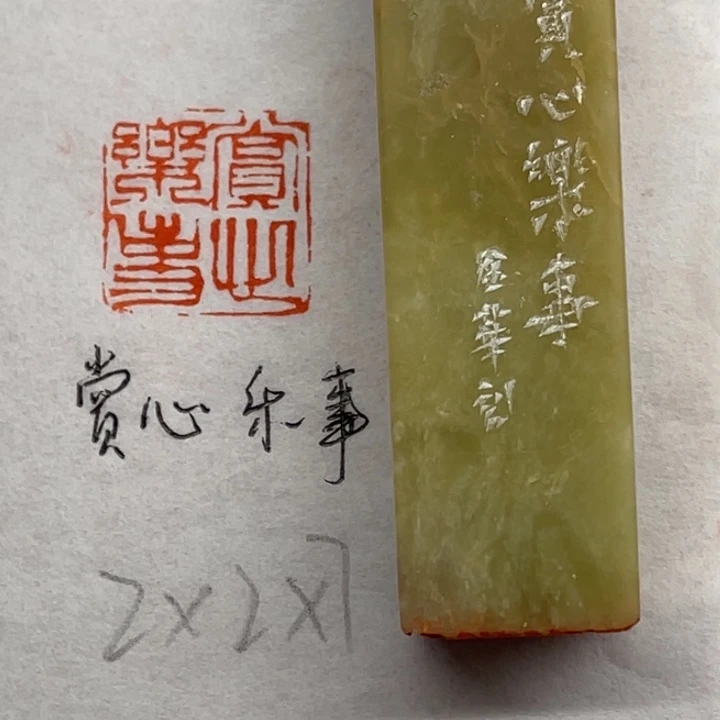 賞心
樂事
賞心乐事
2×2×7
賞心樂事
金華刻